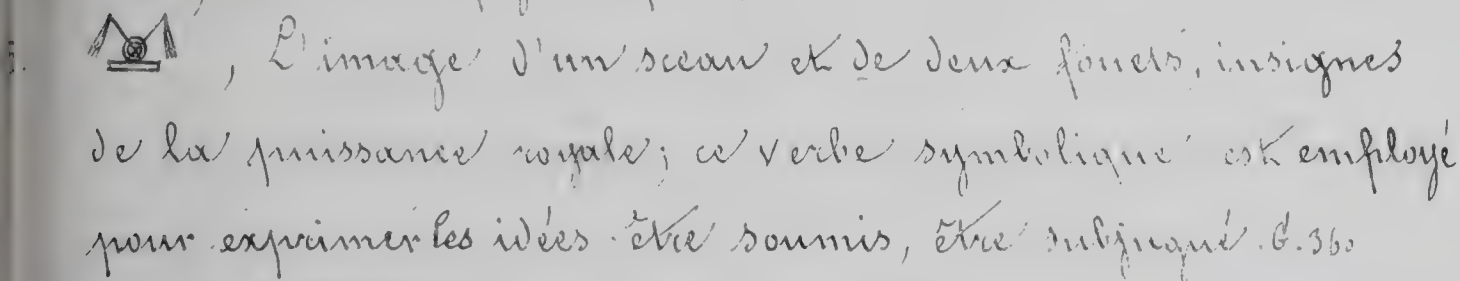 5. , L'image d'un sceau et de deux fouets, insignes
de la puissance royale; ce verbe symbolique est employé
pour exprimer les idées être soumis, être subjugué. G. 360